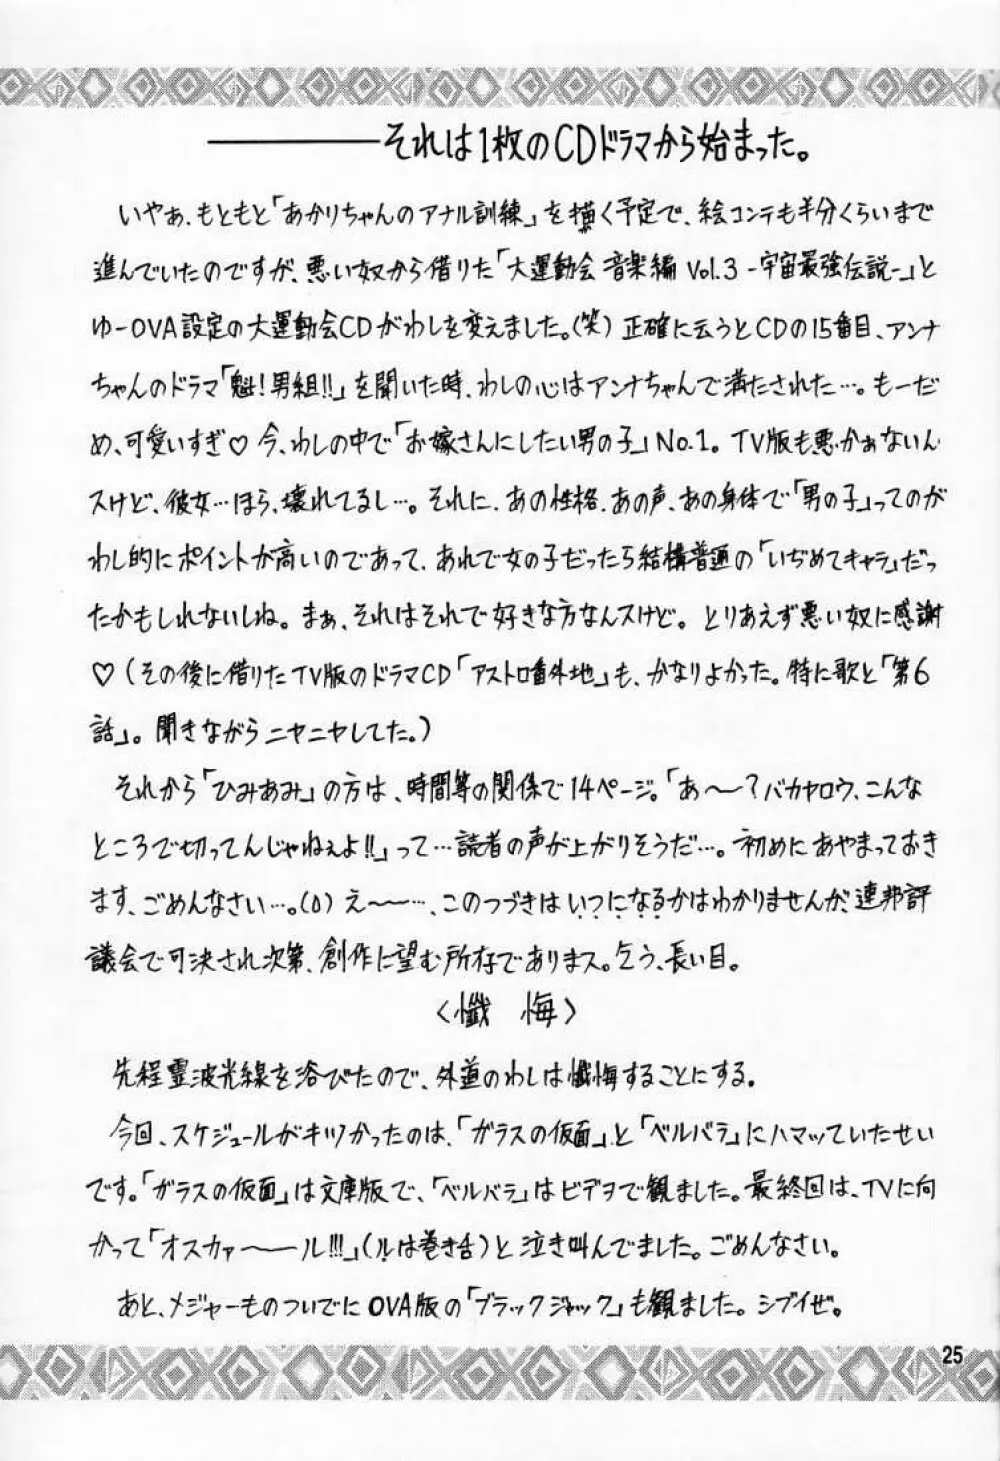 ————それは1枚のCDドラマから始まった。
いやぁ、もともと「あかりちゃんのアナル訓練」を描く予定で、絵コンテも半分くらいまで
進んでいたのですが、悪い奴から借りた「大運動会 音楽編 Vol.3 -宇宙最強伝説-」と
ゆーOVA設定の大運動会CDがわしを変えました。(笑) 正確に云うとCDの15番目、アンナ
ちゃんのドラマ「魁!男組!!」を聞いた時、わしの心はアンナちゃんで満たされた…。もーだ
め、可愛いすぎ♡ 今、わしの中で「お嫁さんにしたい男の子」No.1。TV版も悪かぁないん
スけど、彼女…ほら、壊れてるし…。それに、あの性格、あの声、あの身体で「男の子」ってのが
わし的にポイントが高いのであって、あれで女の子だったら結構普通の「いぢめてキャラ」だっ
たかもしれないしね。まぁ、それはそれで好きな方なんスけど。とりあえず悪い奴に感謝
♡(その後に借りたTV版のドラマCD「アストロ番外地」も、かなりよかった。特に歌と「第6
話」。聞きながらニヤニヤしてた。)
それから「ひみあみ」の方は、時間等の関係で14ページ。「あ〜〜?バカヤロウ、こんな
ところで切ってんじゃねぇよ!!」って…読者の声が上がりそうだ…。初めにあやまっておき
ます、ごめんなさい…。(0) え〜〜…、このつづきはいつになるかはわかりませんが、連邦評
議会で可決され次第、創作に望む所存でありまス。乞う、長い目。
〈懺 悔〉
先程霊波光線を浴びたので、外道のわしは懺悔することにする。
今回、スケジュールがキツかったのは、「ガラスの仮面」と「ベルバラ」にハマッていたせい
です。「ガラスの仮面」は文庫版で、「ベルバラ」はビデオで観ました。最終回は、TVに向
かって「オスカァ〜〜ル!!!」(ルは巻き舌)と泣き叫んでました。ごめんなさい。
あと、メジャーもののついでにOVA版の「ブラックジャック」も観ました。シブイぜ。
25